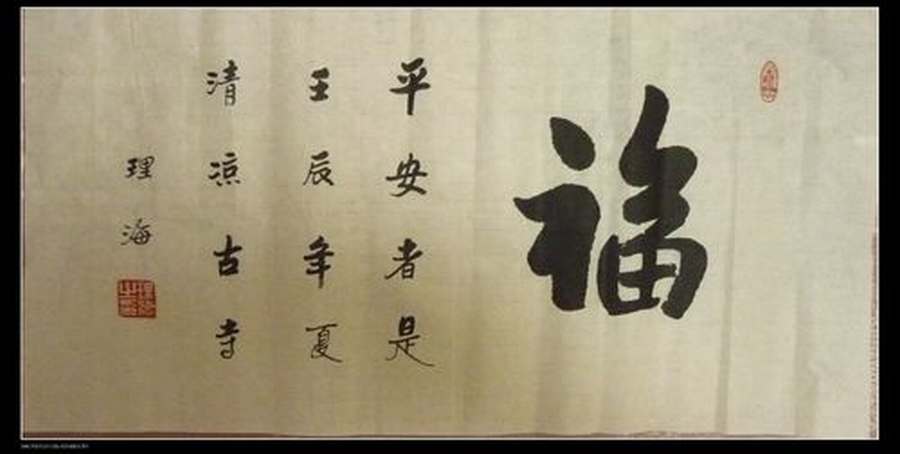 福
平安者是
壬辰年夏
清凉古寺
理海